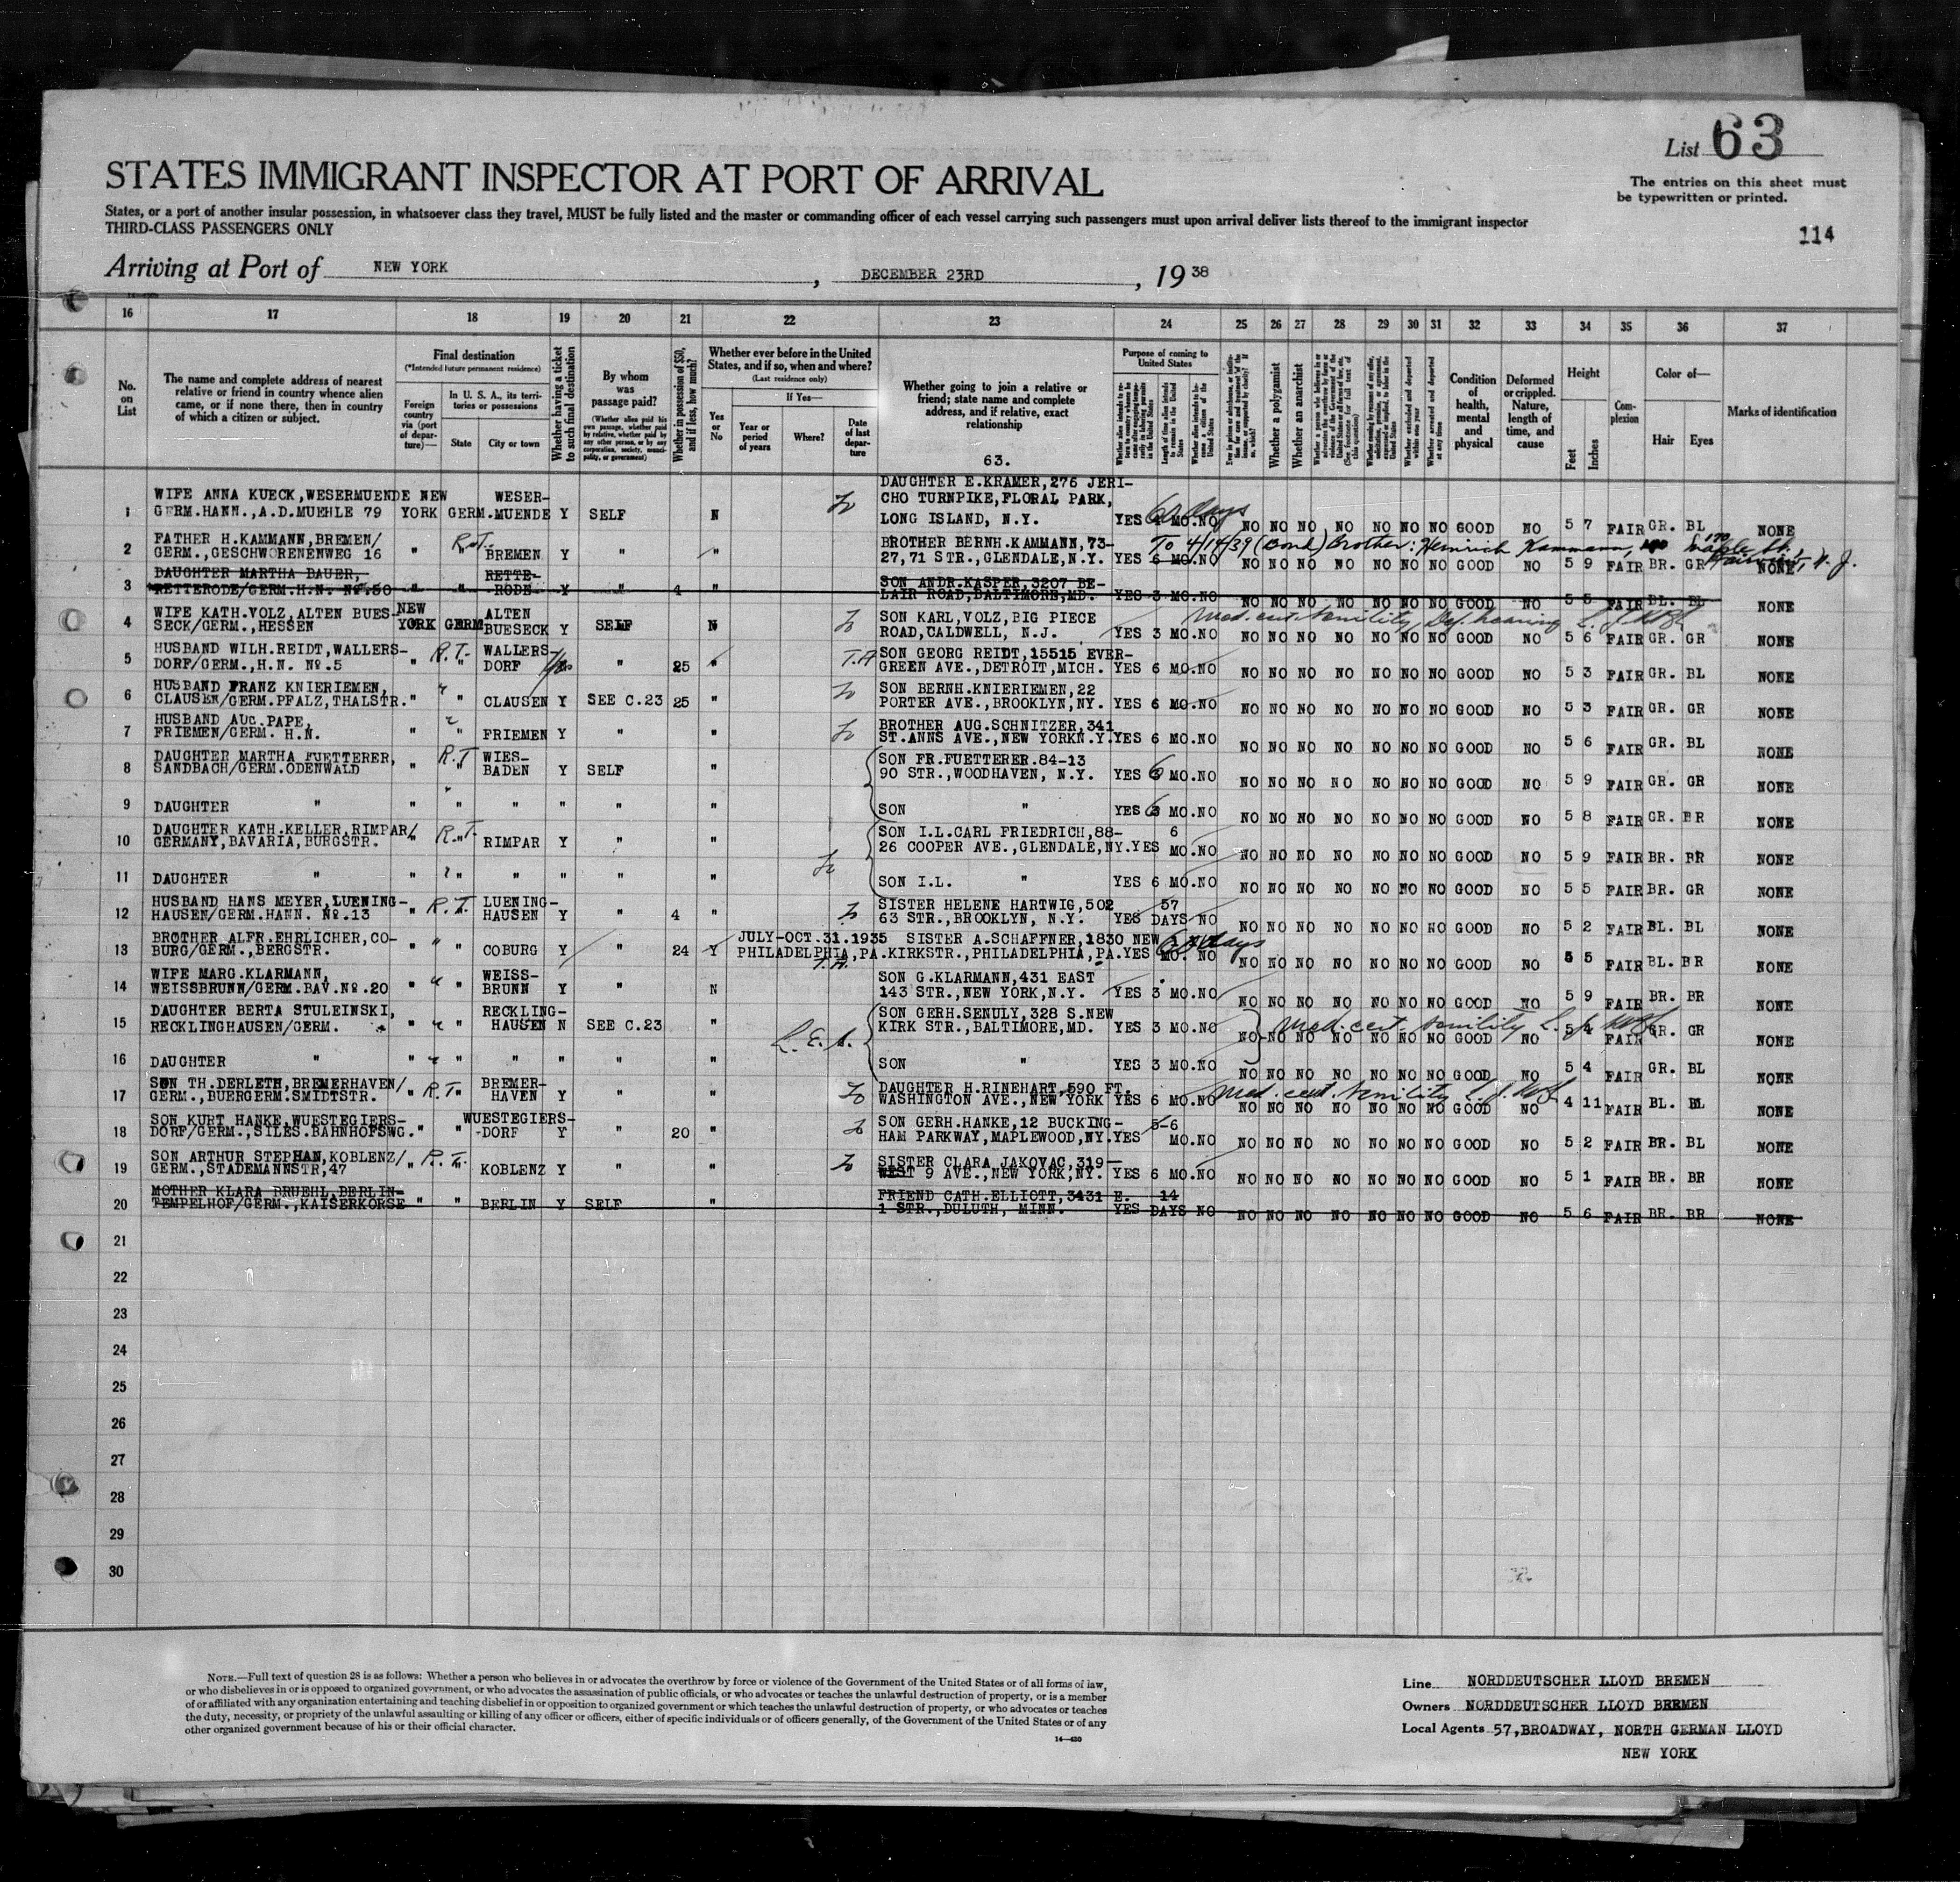 List 63
STATES IMMIGRANT INSPECTOR AT PORT OF ARRIVAL
The entries on this sheet must
be typewritten or printed.
States, or a port of another insular possession, in whatsoever class they travel, MUST be fully listed and the master or commanding officer of each vessel carrying such passengers must upon arrival deliver lists thereof to the immigrant inspector
THIRD-CLASS PASSENGERS ONLY
114
Arriving at Port of NEW YORK, DECEMBER 23RD, 19 38
16 17 18 19 20 21 22 23 24 25 26 27 28 29 30 31 32 33 34 35 36 37
No. on List
The name and complete address of nearest relative or friend in country whence alien came, or if none there, then in country of which a citizen or subject.
Final destination
(*Intended future permanent residence)
Foreign country via (port of departure)—
In U. S. A., its territories or possessions
State
City or town
Whether having a ticket to such final destination
By whom was passage paid?
(Whether alien paid his own passage, whether paid by relative, whether paid by any other person, or by any corporation, society, municipality, or government)
Whether in possession of $50, and if less, how much?
Whether ever before in the United States, and if so, when and where?
(Last residence only)
Yes or No
If Yes—
Year or period of years
Where?
Date of last departure
Whether going to join a relative or friend; state name and complete address, and if relative, exact relationship
63.
Purpose of coming to United States
Length of time alien intends to remain in the United States
Whether a polygamist
Whether an anarchist
Condition of health, mental and physical
Deformed or crippled. Nature, length of time, and cause
Height
Feet
Inches
Complexion
Color of—
Hair
Eyes
Marks of identification
1 WIFE ANNA KUECK,WESERMUENDE GERM.HANN.,A.D.MUEHLE 79 NEW YORK GERM. WESER-MUENDE Y SELF N DAUGHTER E.KRAMER,276 JERI-CHO TURNPIKE,FLORAL PARK, LONG ISLAND, N.Y. YES MO.NO 60 days NO NO NO NO NO NO NO GOOD NO 5 7 FAIR GR. BL NONE
2 FATHER H.KAMMANN,BREMEN/ GERM.,GESCHWORENENWEG 16 " R.T. BREMEN Y " " BROTHER BERNH.KAMMANN,73-27,71 STR.,GLENDALE,N.Y. YES 6 MO.NO To 4/14/39 (Bond) Brother: Heinrich Kammann, 170 Maple St., N.J. NO NO NO NO NO NO NO GOOD NO 5 9 FAIR BR. GR NONE
3 DAUGHTER MARTHA BAUER, RETTERODE/GERM.H.N. No.50 " " RETTE-RODE Y " 4 " SON ANDR.KASPER,3207 BE-LAIR ROAD,BALTIMORE,MD. YES 3 MO.NO NO NO NO NO NO NO NO GOOD NO 5 5 FAIR BL. BL NONE
4 WIFE KATH.VOLZ,ALTEN BUES-SECK/GERM.,HESSEN NEW YORK GERM. ALTEN BUESECK Y SELF N SON KARL,VOLZ,BIG PIECE ROAD,CALDWELL, N.J. YES 3 MO.NO Med. cert. Senility, Def. hearing NO NO NO NO NO NO NO GOOD NO 5 6 FAIR GR. GR NONE
5 HUSBAND WILH.REIDT,WALLERS-DORF/GERM.,H.N. No.5 " R.T. " WALLERS-DORF " 25 T.A SON GEORG REIDT,15515 EVER-GREEN AVE.,DETROIT,MICH. YES 6 MO.NO NO NO NO NO NO NO NO GOOD NO 5 3 FAIR GR. BL NONE
6 HUSBAND FRANZ KNIERIEMEN, CLAUSEN/GERM.PFALZ,THALSTR. " " CLAUSEN Y SEE C.23 25 " SON BERNH.KNIERIEMEN,22 PORTER AVE.,BROOKLYN,NY. YES 6 MO.NO NO NO NO NO NO NO NO GOOD NO 5 3 FAIR GR. GR NONE
7 HUSBAND AUG.PAPE, FRIEMEN/GERM. H.N. " " FRIEMEN Y " " BROTHER AUG.SCHNITZER,341 ST.ANNS AVE.,NEW YORKN.Y. YES 6 MO.NO NO NO NO NO NO NO NO GOOD NO 5 6 FAIR GR. BL NONE
8 DAUGHTER MARTHA FUETTERER, SANDBACH/GERM.ODENWALD " R.T " WIES-BADEN Y SELF " SON FR.FUETTERER.84-13 90 STR.,WOODHAVEN, N.Y. YES 6 MO.NO NO NO NO NO NO NO NO GOOD NO 5 9 FAIR GR. GR NONE
9 DAUGHTER " " " " " " " SON " YES 6 MO.NO NO NO NO NO NO NO NO GOOD NO 5 8 FAIR GR. BR NONE
10 DAUGHTER KATH.KELLER,RIMPAR/ GERMANY,BAVARIA,BURGSTR. " R.T. RIMPAR Y " " SON I.L.CARL FRIEDRICH,88-26 COOPER AVE.,GLENDALE,NY. YES 6 MO.NO NO NO NO NO NO NO NO GOOD NO 5 9 FAIR BR. BR NONE
11 DAUGHTER " " " " " " " SON I.L. " YES 6 MO.NO NO NO NO NO NO NO NO GOOD NO 5 5 FAIR BR. GR NONE
12 HUSBAND HANS MEYER,LUENING-HAUSEN/GERM.HANN. No.13 " R.T. LUENING-HAUSEN Y " 4 " SISTER HELENE HARTWIG,502 63 STR.,BROOKLYN, N.Y. YES 57 DAYS NO NO NO NO NO NO NO NO GOOD NO 5 2 FAIR BL. BL NONE
13 BROTHER ALFR.EHRLICHER,CO-BURG/GERM.,BERGSTR. " " COBURG Y " 24 Y JULY-OCT.31.1935 PHILADELPHIA,PA. T.A. SISTER A.SCHAFFNER,1830 NEW KIRKSTR.,PHILADELPHIA,PA. YES MO. NO days NO NO NO NO NO NO NO GOOD NO 5 5 FAIR BL. BR NONE
14 WIFE MARG.KLARMANN, WEISSBRUNN/GERM.BAV.No.20 " " WEISS-BRUNN Y " N SON G.KLARMANN,431 EAST 143 STR.,NEW YORK,N.Y. YES 3 MO.NO NO NO NO NO NO NO NO GOOD NO 5 9 FAIR BR. BR NONE
15 DAUGHTER BERTA STULEINSKI, RECKLINGHAUSEN/GERM. " " RECKLING-HAUSEN N SEE C.23 " SON GERH.SENULY,328 S.NEW KIRK STR.,BALTIMORE,MD. YES 3 MO.NO Med. cert. Senility NO NO NO NO NO NO NO GOOD NO 5 4 FAIR GR. GR NONE
16 DAUGHTER " " " " " " " SON " YES 3 MO.NO NO NO NO NO NO NO NO GOOD NO 5 4 FAIR GR. BL NONE
17 SON TH.DERLETH,BREMERHAVEN/ GERM.,BUERGERM.SMIDTSTR. " R.T. BREMER-HAVEN Y " " DAUGHTER H.RINEHART,590 FT. WASHINGTON AVE.,NEW YORK YES 6 MO.NO Med. cert. Senility NO NO NO NO NO NO NO GOOD NO 4 11 FAIR BL. BL NONE
18 SON KURT HANKE,WUESTEGIERS-DORF/GERM.,SILES.BAHNHOFSWG. " " WUESTEGIERS-DORF Y 20 " SON GERH.HANKE,12 BUCKING-HAM PARKWAY,MAPLEWOOD,NY. YES 5-6 MO.NO NO NO NO NO NO NO NO GOOD NO 5 2 FAIR BR. BL NONE
19 SON ARTHUR STEPHAN,KOBLENZ/ GERM.,STADEMANNSTR,47 " R.T. KOBLENZ Y " " SISTER CLARA JAKOVAC,319— WEST 9 AVE.,NEW YORK,NY. YES 6 MO.NO NO NO NO NO NO NO NO GOOD NO 5 1 FAIR BR. BR NONE
20 MOTHER KLARA BRUEHL,BERLIN-TEMPELHOF/GERM.,KAISERKORSE " " BERLIN Y SELF " FRIEND CATH.ELLIOTT,3431 E. 1 STR.,DULUTH, MINN. YES 14 DAYS NO NO NO NO NO NO NO NO GOOD NO 5 6 FAIR BR. BR NONE
21
22
23
24
25
26
27
28
29
30
NOTE.—Full text of question 28 is as follows: Whether a person who believes in or advocates the overthrow by force or violence of the Government of the United States or of all forms of law,
or who disbelieves in or is opposed to organized government, or who advocates the assassination of public officials, or who advocates or teaches the unlawful destruction of property, or is a member
of or affiliated with any organization entertaining and teaching disbelief in or opposition to organized government or which teaches the unlawful destruction of property, or who advocates or teaches
the duty, necessity, or propriety of the unlawful assaulting or killing of any officer or officers, either of specific individuals or of officers generally, of the Government of the United States or of any
other organized government because of his or their official character.
14—430
Line NORDDEUTSCHER LLOYD BREMEN
Owners NORDDEUTSCHER LLOYD BREMEN
Local Agents 57,BROADWAY, NORTH GERMAN LLOYD
NEW YORK